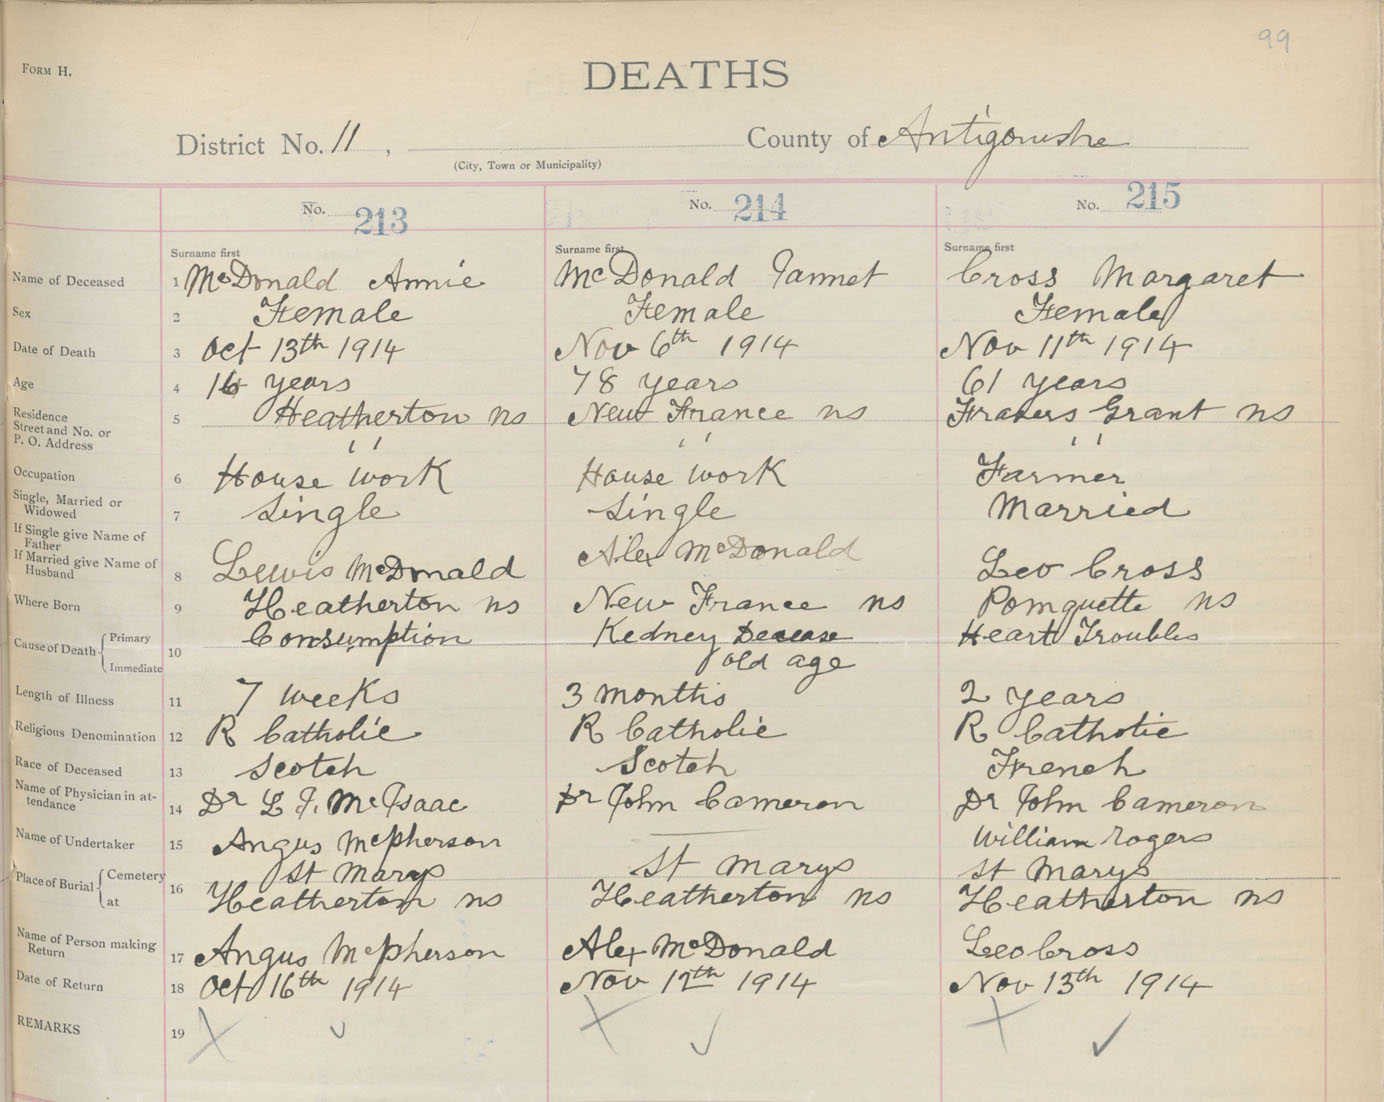 99
FORM H.
DEATHS
District No. 11 , County of Antigonishe
(City, Town or Municipality)
No. 213 No. 214 No. 215
Surname first Surname first Surname first
Name of Deceased 1 McDonald Annie McDonald Jannet Cross Margaret
Sex 2 Female Female Female
Date of Death 3 Oct 13th 1914 Nov 6th 1914 Nov 11th 1914
Age 4 years 78 years 61 years
Residence
Street and No. or 5 Heatherton ns New France ns Frasers Grant ns
P. O. Address '' '' ''
Occupation 6 House work House work Farmer
Single, Married or
Widowed 7 Single Single Married
If Single give Name of
Father
If Married give Name of
Husband 8 Lewis McDonald Alex McDonald Leo Cross
Where Born 9 Heatherton ns New France ns Pomquette ns
Cause of Death Primary Consumption Kedney Decease Heart Troubles
Immediate 10 old age
Length of Illness 11 7 weeks 3 months 2 years
Religious Denomination 12 R Catholic R Catholic R Catholic
Race of Deceased 13 Scotch Scotch French
Name of Physician in at-
tendance 14 Dr L J. McIsaac Dr John Cameron Dr John Cameron
Name of Undertaker 15 Angus McPherson — William Rogers
Place of Burial Cemetery St Marys St Marys St Marys
at 16 Heatherton ns Heatherton ns Heatherton ns
Name of Person making
Return 17 Angus McPherson Alex McDonald Leo Cross
Date of Return 18 Oct 16th 1914 Nov 12th 1914 Nov 13th 1914
REMARKS 19